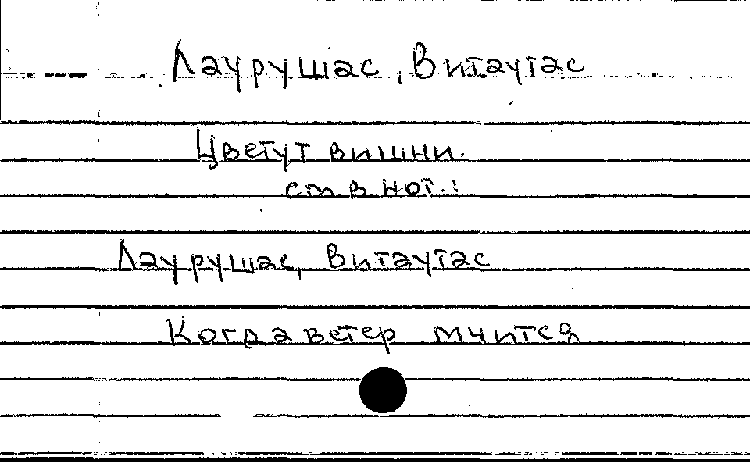 Лаурушас, Витаутас
Цветут вишни.
см в нот.:
Лаурушас, Витаутас
Когда ветер мчится